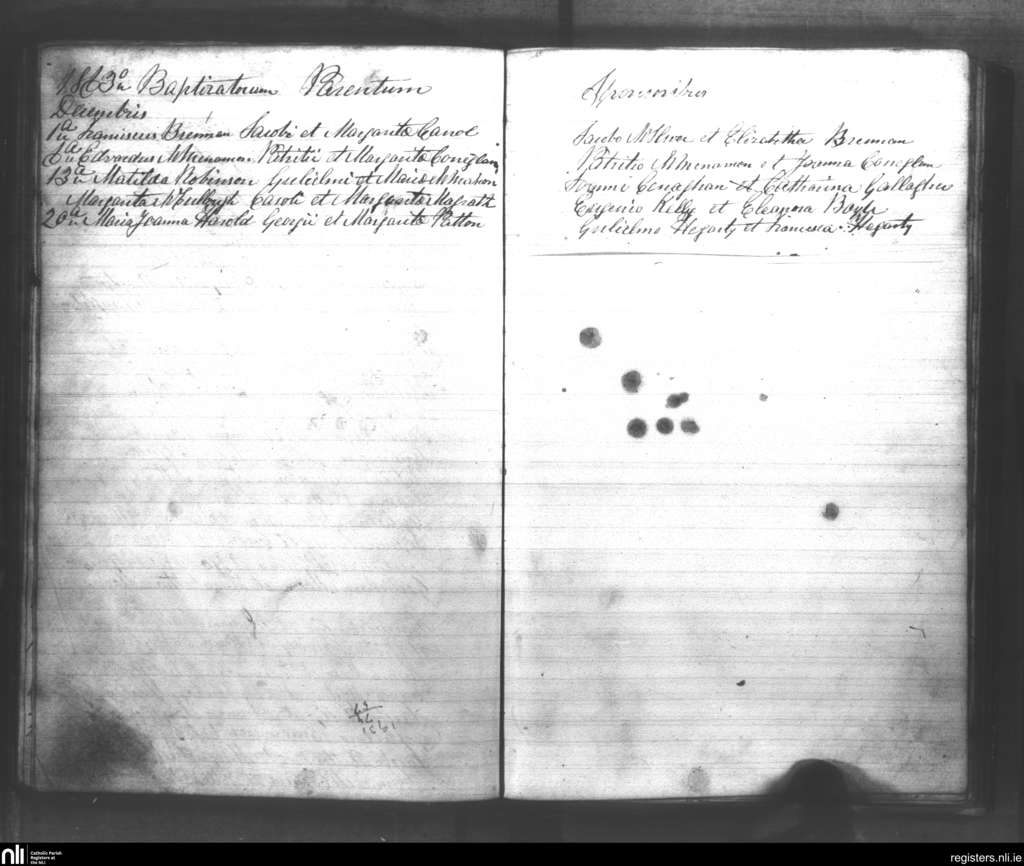 1863º Baptizatorum Parentum
Decembris
1ª Franciscus Brennan Jacobi et Margarita Canol
Edvardus McMenamen Patritii et Margarita Coneglan
13ª Matilda Robinson Gulielmi et Maria
Margarita McCullough Caroli et Margarita Magratt
20ª Maria Joanna Harold Georgii et Margarita Patton
Sponsoribus
Jacobo et Elizabetha Brennan
Patritio McMenamen et Joanna Coneglan
Joanne Conaghan et Catharina Gallagher
Eugenio Kelly et Eleanora Boyle
Gulielmo Hegarty et Francisca Hegarty
nli Catholic Parish
Registers at
the NLI
registers.nli.ie